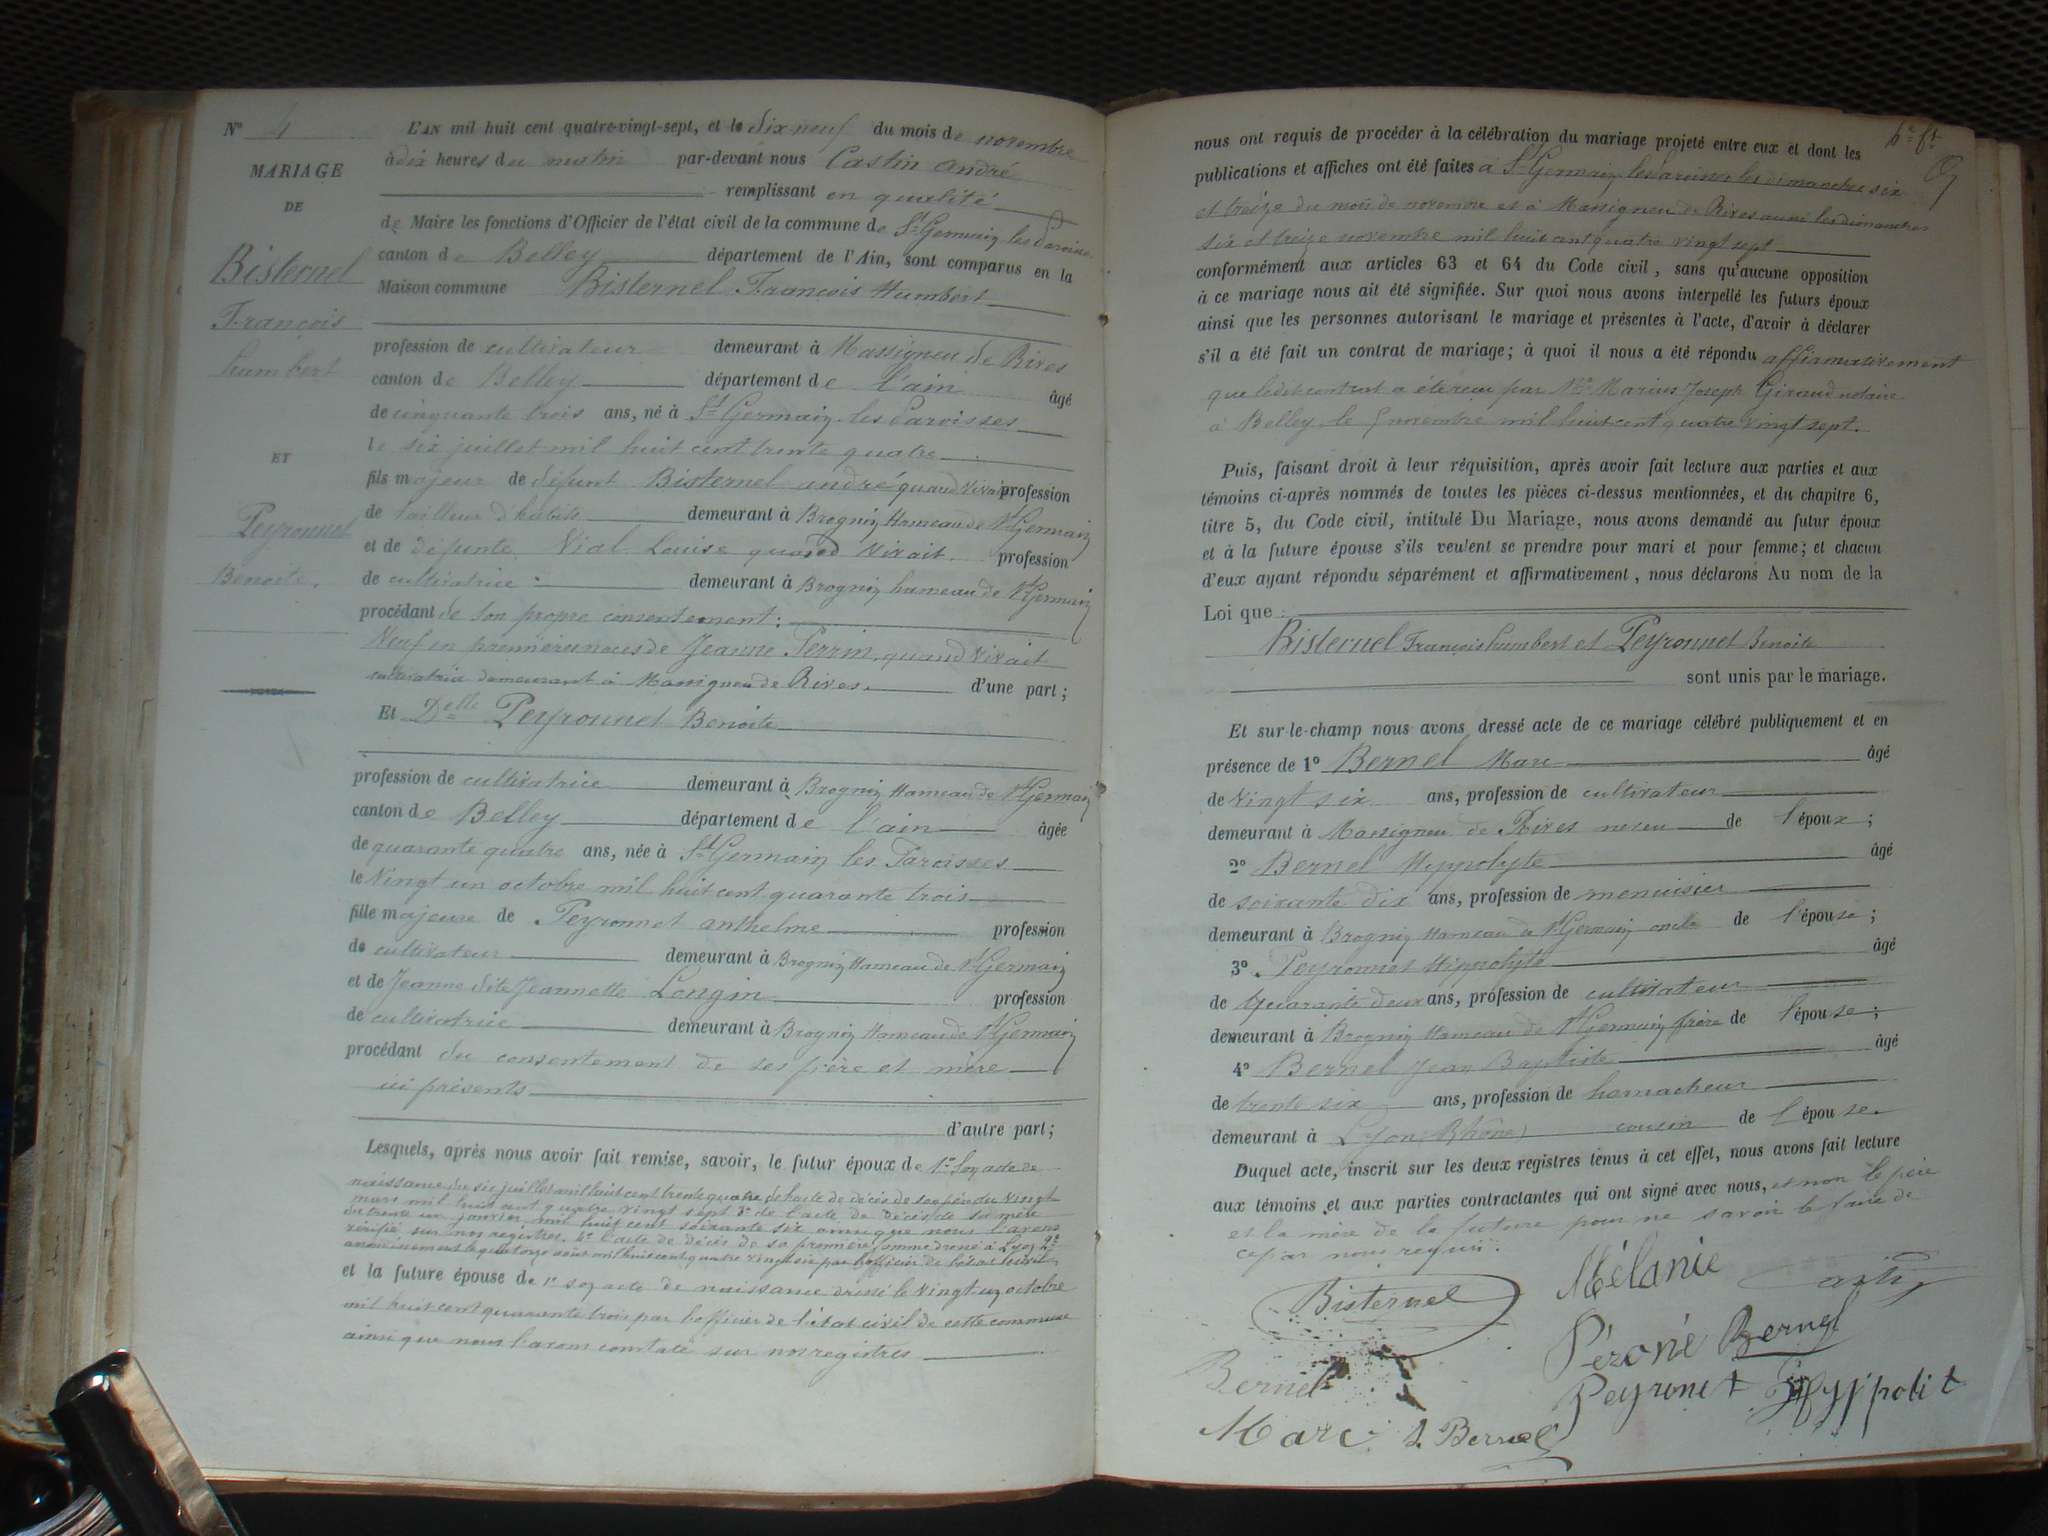 N° 4
MARIAGE
DE
Bisternel
François
humbert
ET
Peyronnet
Benoite.
L'AN mil huit cent quatre-vingt-sept, et le dix-neuf du mois de novembre
à dix heures du matin par-devant nous Castin André
remplissant en qualité
de Maire les fonctions d'Officier de l'état civil de la commune de St Germain les Paroisses
canton de Belley département de l'Ain, sont comparus en la
Maison commune Bisternel François Humbert
profession de cultivateur demeurant à Massigneu de Rives
canton de Belley département de l'ain âgé
de cinquante trois ans, né à St Germain les Paroisses
le six juillet mil huit cent trente quatre
fils majeur de défunt Bisternel andré quand vivait profession
de tailleur d'habits demeurant à Brognin Hameau de St Germain
et de defunte Vial Louise quand vivait profession
de cultivatrice demeurant à Brognin hameau de St Germain
procédant de son propre consentement :
Veuf en premières noces de Jeanne Perrin, quand vivait
cultivatrice demeurant à Massigneu de Rives. d'une part ;
Et Delle Peyronnet Benoite
profession de cultivatrice demeurant à Brognin Hameau de St Germain
canton de Belley département de l'ain âgée
de quarante quatre ans, née à St Germain les Paroisses
le vingt un octobre mil huit cent quarante trois
fille majeure de Peyronnet anthelme profession
de cultivateur demeurant à Brognin Hameau de St Germain
et de Jeanne dite Jeannette Longin profession
de cultivatrice demeurant à Brognin Hameau de St Germain
procédant du consentement de ses père et mère
ici présents
d'autre part ;
Lesquels, après nous avoir fait remise, savoir, le futur époux de 1° son acte de
naissance du six juillet mil huit cent trente quatre de l'acte de décès de son père du vingt
mars mil huit cent quatre vingt sept 3° de l'acte de décès de sa mère
du trente un janvier mil huit cent soixante six ainsi que nous l'avons
vérifié sur nos registres. 4° l'acte de décès de sa première femme dressé à Lyon 2e
arrondissement le quatorze août mil huit cent quatre vingt six par l'officier de l'état civil
et la future épouse de 1° son acte de naissance dressé le vingt un octobre
mil huit cent quarante trois par l'officier de l'état civil de cette commune
ainsi que nous l'avons constaté sur nos registres
nous ont requis de procéder à la célébration du mariage projeté entre eux et dont les
publications et affiches ont été faites à St Germain les Paroisses les dimanches six
et treize du mois de novembre et à Massigneu de Rives aussi les dimanches
six et treize novembre mil huit cent quatre vingt sept
conformément aux articles 63 et 64 du Code civil, sans qu'aucune opposition
à ce mariage nous ait été signifiée. Sur quoi nous avons interpellé les futurs époux
ainsi que les personnes autorisant le mariage et présentes à l'acte, d'avoir à déclarer
s'il a été fait un contrat de mariage ; à quoi il nous a été répondu affirmativement
que ledit contrat a été reçu par Me Marius Joseph Giraud notaire
à Belley le 5 novembre mil huit cent quatre vingt sept.
Puis, faisant droit à leur réquisition, après avoir fait lecture aux parties et aux
témoins ci-après nommés de toutes les pièces ci-dessus mentionnées, et du chapitre 6,
titre 5, du Code civil, intitulé Du Mariage, nous avons demandé au futur époux
et à la future épouse s'ils veulent se prendre pour mari et pour femme ; et chacun
d'eux ayant répondu séparément et affirmativement, nous déclarons Au nom de la
Loi que
Bisternel François humbert et Peyronnet Benoite
sont unis par le mariage.
Et sur-le-champ nous avons dressé acte de ce mariage célébré publiquement et en
présence de 1° Bernel Marc âgé
de vingt six ans, profession de cultivateur
demeurant à Massigneu de Rives neveu de l'époux ;
2° Bernel Hyppolyte âgé
de soixante dix ans, profession de menuisier
demeurant à Brognin Hameau de St Germain oncle de l'épouse ;
3°. Peyronnet Hippolyte âgé
de quarante deux ans, profession de cultivateur
demeurant à Brognin Hameau de St Germain frère de l'épouse ;
4° Bernel Jean Baptiste âgé
de trente six ans, profession de harnacheur
demeurant à Lyon (Rhône) cousin de l'épouse.
Duquel acte, inscrit sur les deux registres tenus à cet effet, nous avons fait lecture
aux témoins et aux parties contractantes qui ont signé avec nous, et non le père
et la mère de la future pour ne savoir le faire de
ce par nous requis.
Bisternel
Mélanie
Péroné Bernel
Bernel
Peyronet Hyppolit
Marc
J. Bernel